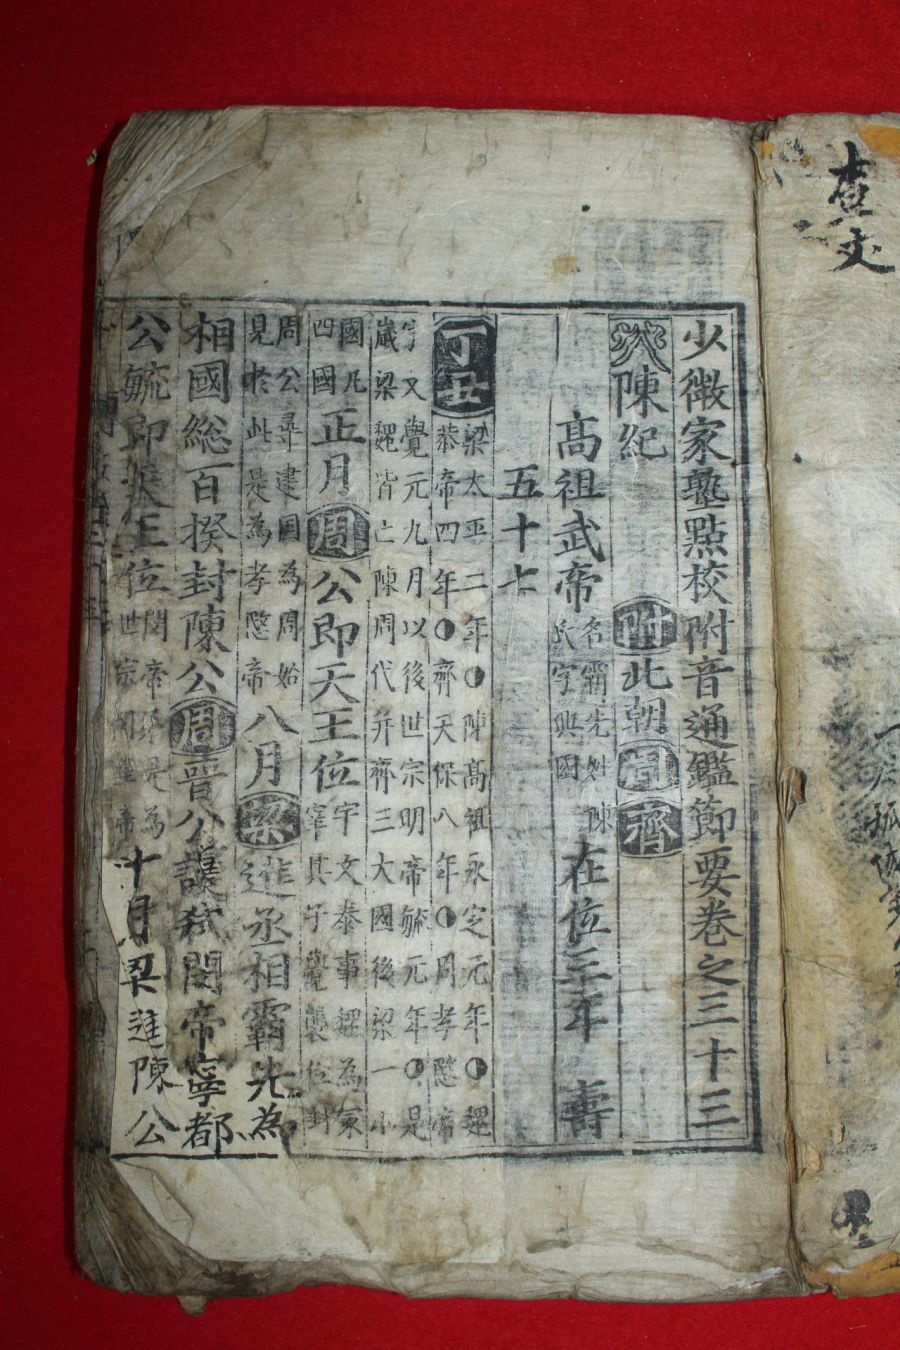 少微家塾點校附音通鑑節要卷之三十三
陳紀 附 北朝 周 齊
高祖武帝 名霸先姓陳氏字興國 在位三年 壽
五十七
丁丑 梁太平二年陳高祖永定元年魏
恭帝四年齊天保八年周孝愍帝
宇文覺元九月以後世宗明帝毓元年是
歲梁魏皆亡陳周代并齊三大國後梁一小
國凡
四國 正月周公即天王位 宇文泰事魏為
宰其子覺襲位封
周公尋建國為周始
見於此是為孝愍帝 八月梁進丞相霸先為
相國総百揆封陳公周晉公護弑閔帝寧都
公毓即天王位 十月梁進陳公
查丈